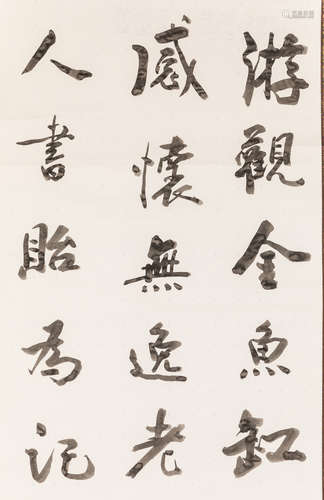 游觀金魚缸
感懷無逸老
人書貽為記